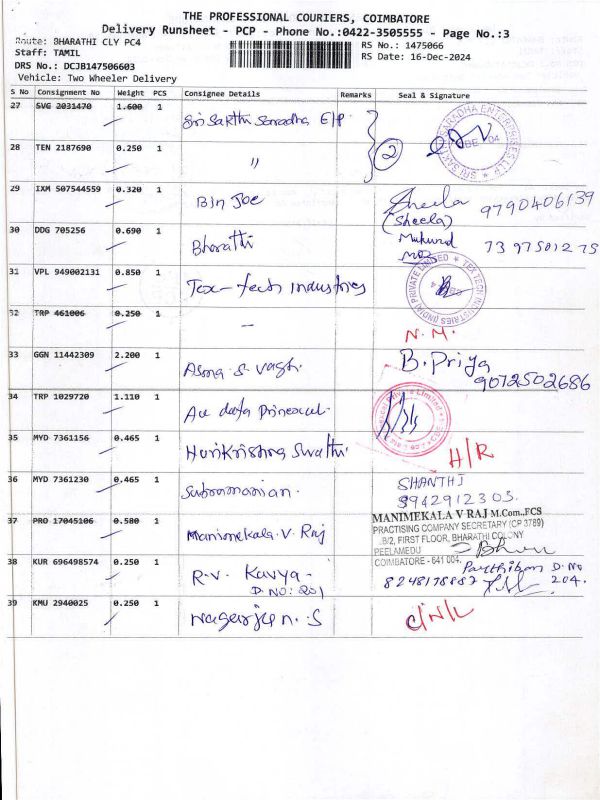 THE PROFESSIONAL COURIERS, COIMBATORE
Delivery Runsheet - PCP - Phone No.:0422-3505555 - Page No.:3
Route: BHARATHI CLY PC4
RS No.: 1475066
Staff: TAMIL
RS Date: 16-Dec-2024
DRS No.: DCJB147506603
Vehicle: Two Wheeler Delivery
S No Consignment No Weight PCS Consignee Details Remarks Seal & Signature
27 SVG 2031470 1.600 1 Sri Sakthi Saradha E/P
28 TEN 2187690 0.250 1 " 2
29 IXM 507544559 0.320 1 Bin Joe Sheela 9790406139
(Sheela)
30 DDG 705256 0.690 1 Bharathi 7397501275
31 VPL 949002131 0.850 1 Tex-tech industries
TEX TECH INDUSTRIES (INDIA) PRIVATE LIMITED
32 TRP 461006 0.250 1 — N.M.
33 GGN 11442309 2.200 1 B. Priya
9072502686
34 TRP 1029720 1.110 1
35 MYD 7361156 0.465 1 Harikrishna Swathi H/R
36 MYD 7361230 0.465 1 Subramanian. SHANTHI
9942912305.
37 PRO 17045106 0.580 1 Manimekala.V.Raj
MANIMEKALA V RAJ M.Com.,FCS
PRACTISING COMPANY SECRETARY (CP 3789)
B/2, FIRST FLOOR, BHARATHI COLONY
PEELAMEDU
COIMBATORE - 641 004.
38 KUR 696498574 0.250 1 R.V. Kavya - Parthiban D.NO
D.NO: 201 8248178887 204.
39 KMU 2940025 0.250 1 Nagarjun. S